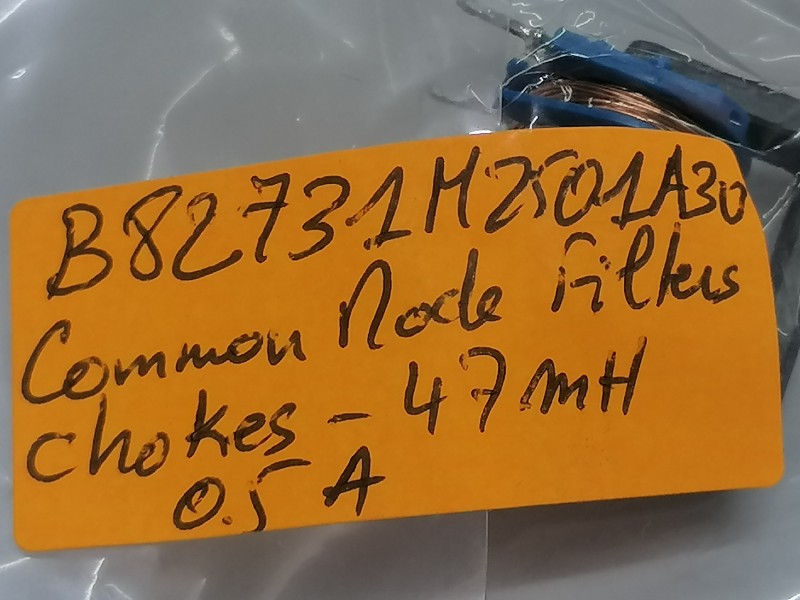 B82731M2501A30
Common Mode Filters
chokes - 47 mH
0.5 A